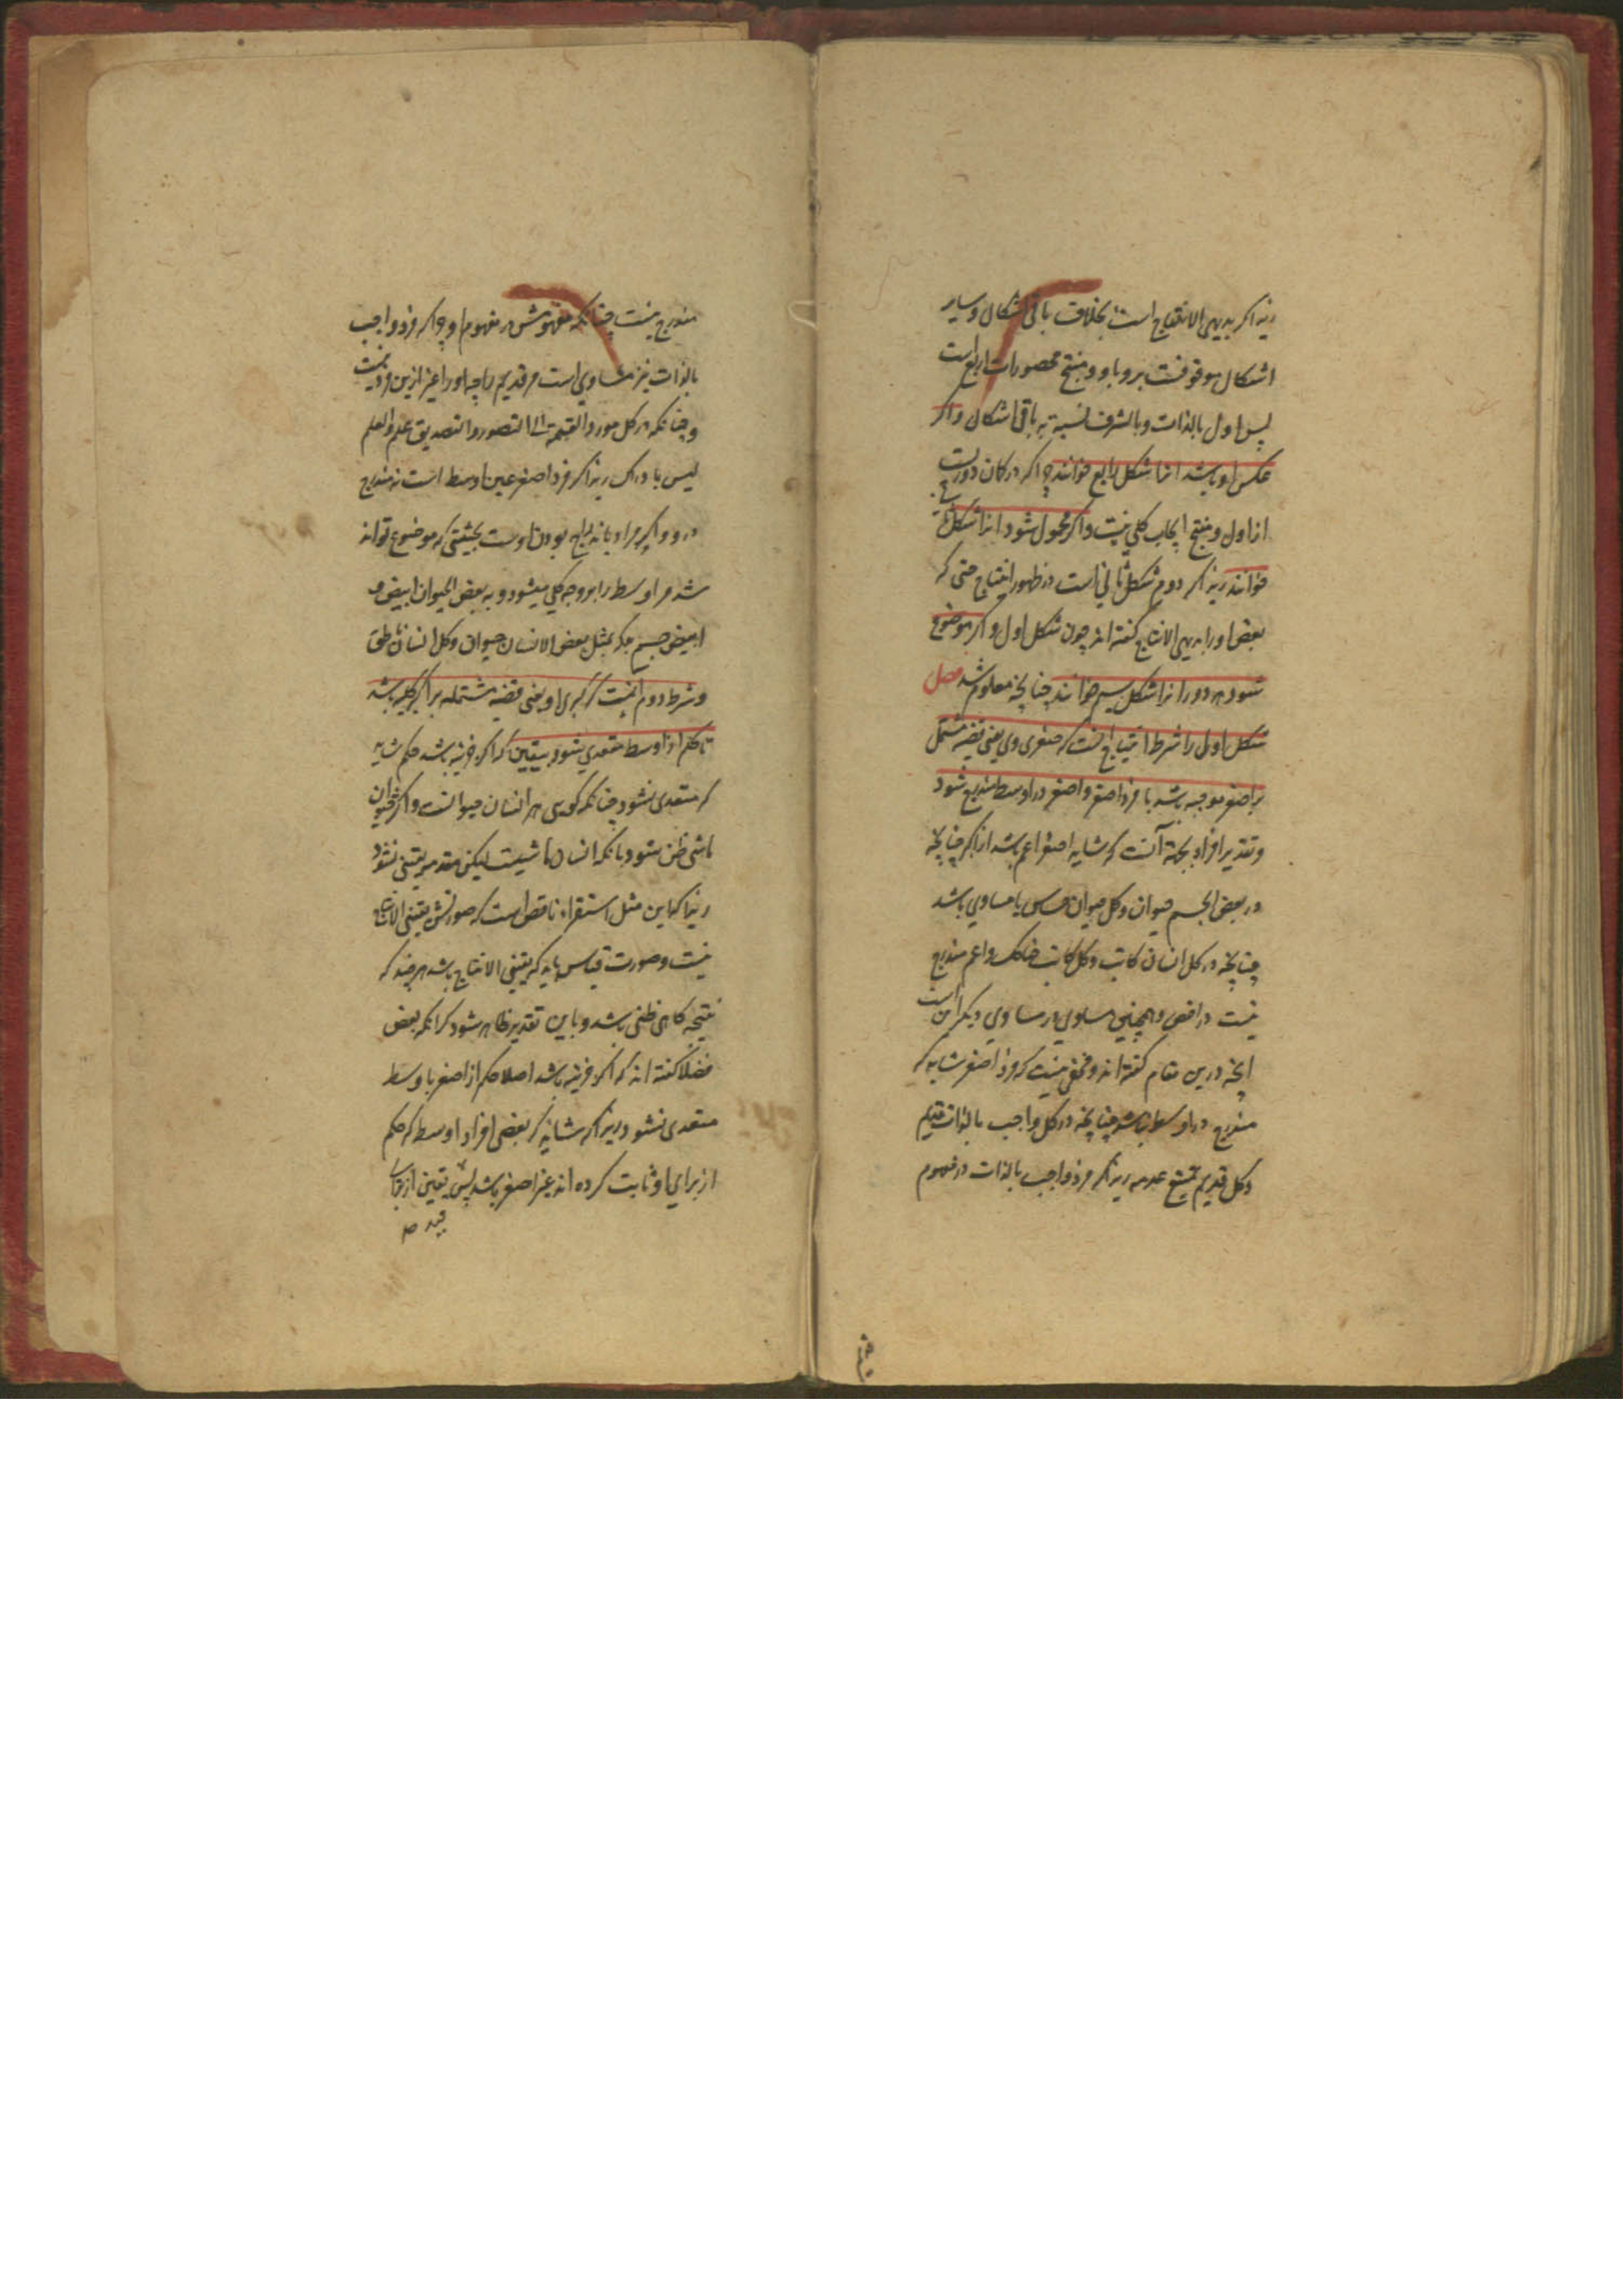 زیرا که بدیهی الانتاج است بخلاف باقی اشکال و سایر
اشکال موقوفست برو و باو و منتج محصورات اربع است
پس اول بالذات و بالشرف نسبت به باقی اشکال و اگر
عکس او باشد انرا شکل رابع خوانند چرا که در کمان دوریست
از اول و منتج ایجاب کلی نیست و اگر محمول شود انرا شکل
خوانند زیرا که دوم شکل ثانی است در ظهور انتاج حتی که
بعض او را بدیهی الانتاج گفته اند چون شکل اول و اگر موضوع
شود هر دو را انرا شکل سیم خوانند چنانچه معلوم شد فصل
شکل اول را شرط انتاج انست که صغری وی یعنی قضیه مشتمل
بر اصغر موجبه باشد تا فرد اصغر و اصغر در اوسط مندرج شود
و تقدیر افراد بجهة آنست که شاید اصغر اعم باشد از اکبر چنانچه
در بعض الجسم حیوان و کل حیوان حساس یا مساوی باشد
چنانچه در کل انسان کاتب و کل کاتب ضاحک و اعم مندرج
نیست در اخص و همچنین مساوی در مساوی دیگر این است
انچه درین مقام گفته اند و مخفی نیست که فرد اصغر شاید که
مندرج در اوسط نباشد چنانچه در کل واجب بالذات قدیم
و کل قدیم یمتنع عدمه زیرا که فرد واجب بالذات در مفهوم
مندرج نیست چنانکه مفهومش در مفهوم او چرا که فرد واجب
بالذات نیز مساوی است مر قدیم را چه او را غیر ازین فرد نیست
و چنانکه در کل مورد القسمة الی التصور و التصدیق علم و العلم
لیس بادراک زیرا که فرد اصغر عین اوسط است نه مندرج
درو و اگر مراد باندراج بودن اوست بحیثیتی که موضوع تواند
شد مر اوسط را بر وجه کلی میشود و به بعض الحیوان ابیض و
ابیض جسم بلکه بمثل بعض الانسان حیوان و کل انسان ناطق
و شرط دوم انست که کبری او یعنی قضیه مشتمله بر اکبر کلیه باشد
تا حکم از اوسط متعدی شود بیقین که اگر جزئیه باشد حکم شاید
که متعدی نشود چنانکه گوئی هر انسان حیوانست و اکثر حیوان
ماشی ظن شود بانکه انسان ماشیست لیکن متعدی یقینی نشود
زیرا که این مثل استقراء ناقص است که صورتش یقینی الانتاج
نیست و صورت قیاس باید که یقینی الانتاج باشد هر چند که
نتیجه گاهی ظنی باشد و باین تقدیر ظاهر شود که انکه بعض
فضلا گفته اند که اگر جزئیه باشد اصلا حکم از اصغر باوسط
متعدی نشود زیرا که شاید که بعض افراد اوسط که حکم
از برای او ثابت کرده اند غیر اصغر باشد پس یقین از